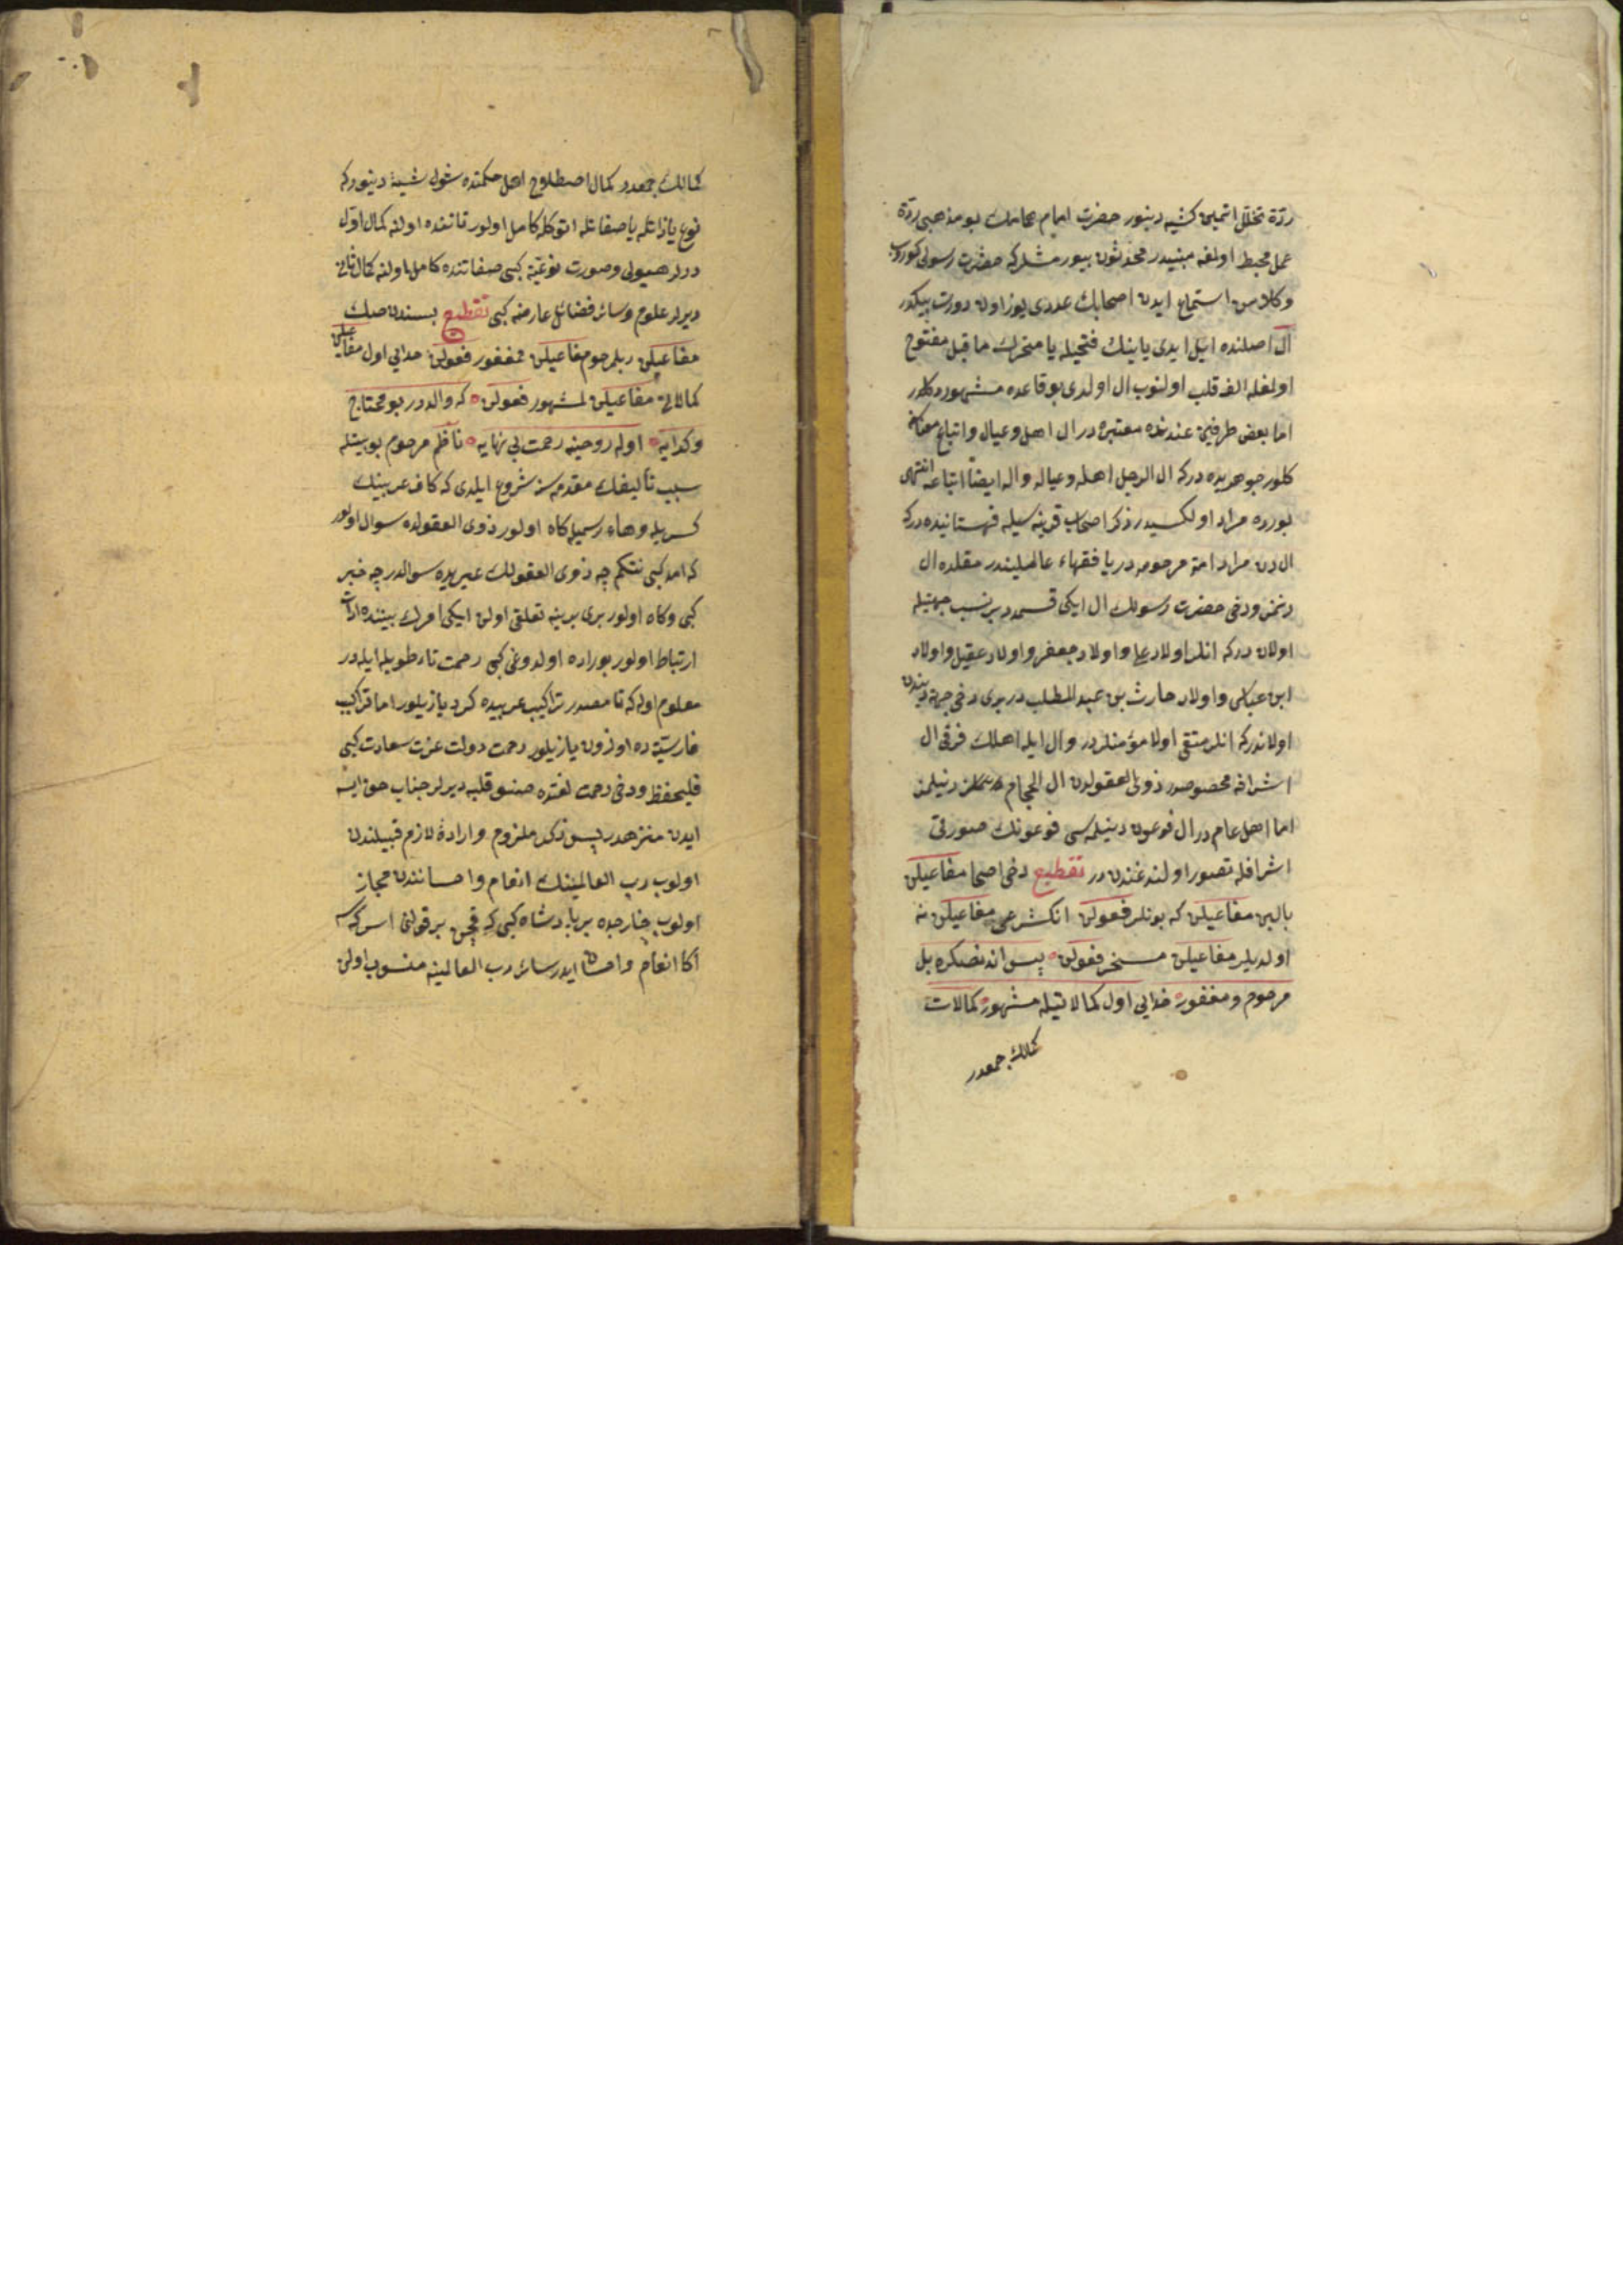 ردّة تخلّل اتمین کشیه دینور حضرت امام بو مذهبی ردّة
عمل محبط اولغنه مبنیدر محدّثون بیورمشلر که حضرت رسولی کوروب
وکلامن استماع ایدن اصحابك عددی یوز اون دورت بیکدر
آل اصلنده ایل ایدی یاینك فتحیله یا متحرك ما قبل مفتوح
اولغله الفه قلب اولنوب ال اولدی بو قاعده مشهوره در
اما بعض طرفین عندنده معتبره در ال اهل وعیال واتباع
کلور جوهریده در که ال الرجل اهله وعیاله واله ایضا اتباعه انتهی
بوراده مراد اولکیسیدر ذکر اصحاب قرینه سیله قهستانیده در که
الدن مراد امة مرحومه در یا فقهاء عالمیلیندر مقلده ال
دنمز ودخی حضرت رسولك ال ایکی قسمدر بر نسب جهتیله
اولان در که انلر اولاد علی واولاد جعفر واولاد عقیل واولاد
ابن عباس واولاد حارث بن عبد المطلب در بری دخی جهة دیندن
اولاندر که انلر متقی اولا مؤمنلر در وال ایله اهلك فرقی ال
اشرافه مخصوصدر ذوی العقولدن ال الحجام دنیلمز
اما اهل عام در ال فرعون دینلمسی فرعونك صورتی
اشرافله تصور اولندغندن در تقطیع دخی اصحا مفاعیلن
بالین مفاعیلن که بونلر فعولن انکشرعی مفاعیلن نه
اولدیلر مفاعیلن مسخر فعولن پس اندنصکره بل
مرحوم ومغفور خدایی اول کمالاتیله مشهور کمالات
کمالك جمعدر
کمالك جمعدر کمال اصطلاح اهل حکمتده شول شیئه دینور که
نوع یا ذاتله یا صفاتله انوکله کامل اولور ذاتنده اولنه کمال اوّل
دیرلر هیولی وصورت نوعیّه کبی صفاتنده کامل اولنه کمال ثانی
دیرلر علوم وسائر فضائل عارضه کبی تقطیع پسندن صك
مفاعیلن ربلمرحوم مفاعیلن مغفور فعولن خدایی اول مفاعیلن
کمالاتی مفاعیلن لمشهور فعولن که والدر بو محتاج
وکدایه اوله روحینه رحمت بی نهایه ناظم مرحوم بو بیتله
سبب تألیفك مقدمه سنه شروع ایلدی که کاف عربینك
کسریله وهاء رسمیله کاه اولور ذوی العقولده سوال اولور
که امد کبی نتکم چه ذوی العقولك غیریده سوالدر چه خبر
کبی وکاه اولور بری برینه تعلقی اولن ایکی امرك بیننده ادات
ارتباط اولور بوراده اولدوغی کبی رحمت تاء طویله ایله در
معلوم اوله که تا مصدر تراکیب عربیده کرد یازیلور اما تراکیب
فارسیّه ده اوزون یازیلور رحمت دولت عزت سعادت کبی
فلیحفظ ودخی رحمت لغتده قلبه دیرلر جناب حق ایسه
ایدن منزهدر پس ذکر ملزوم وارادۀ لازم قبیلندن
اولوب رب العالمینك انعام واحسانندن مجاز
اولوب خارجده بر پادشاه کبی که قچن بر قولنی اسرکسه
اکا انعام واحسان ایدر سائر رب العالمینه منسوب اولن